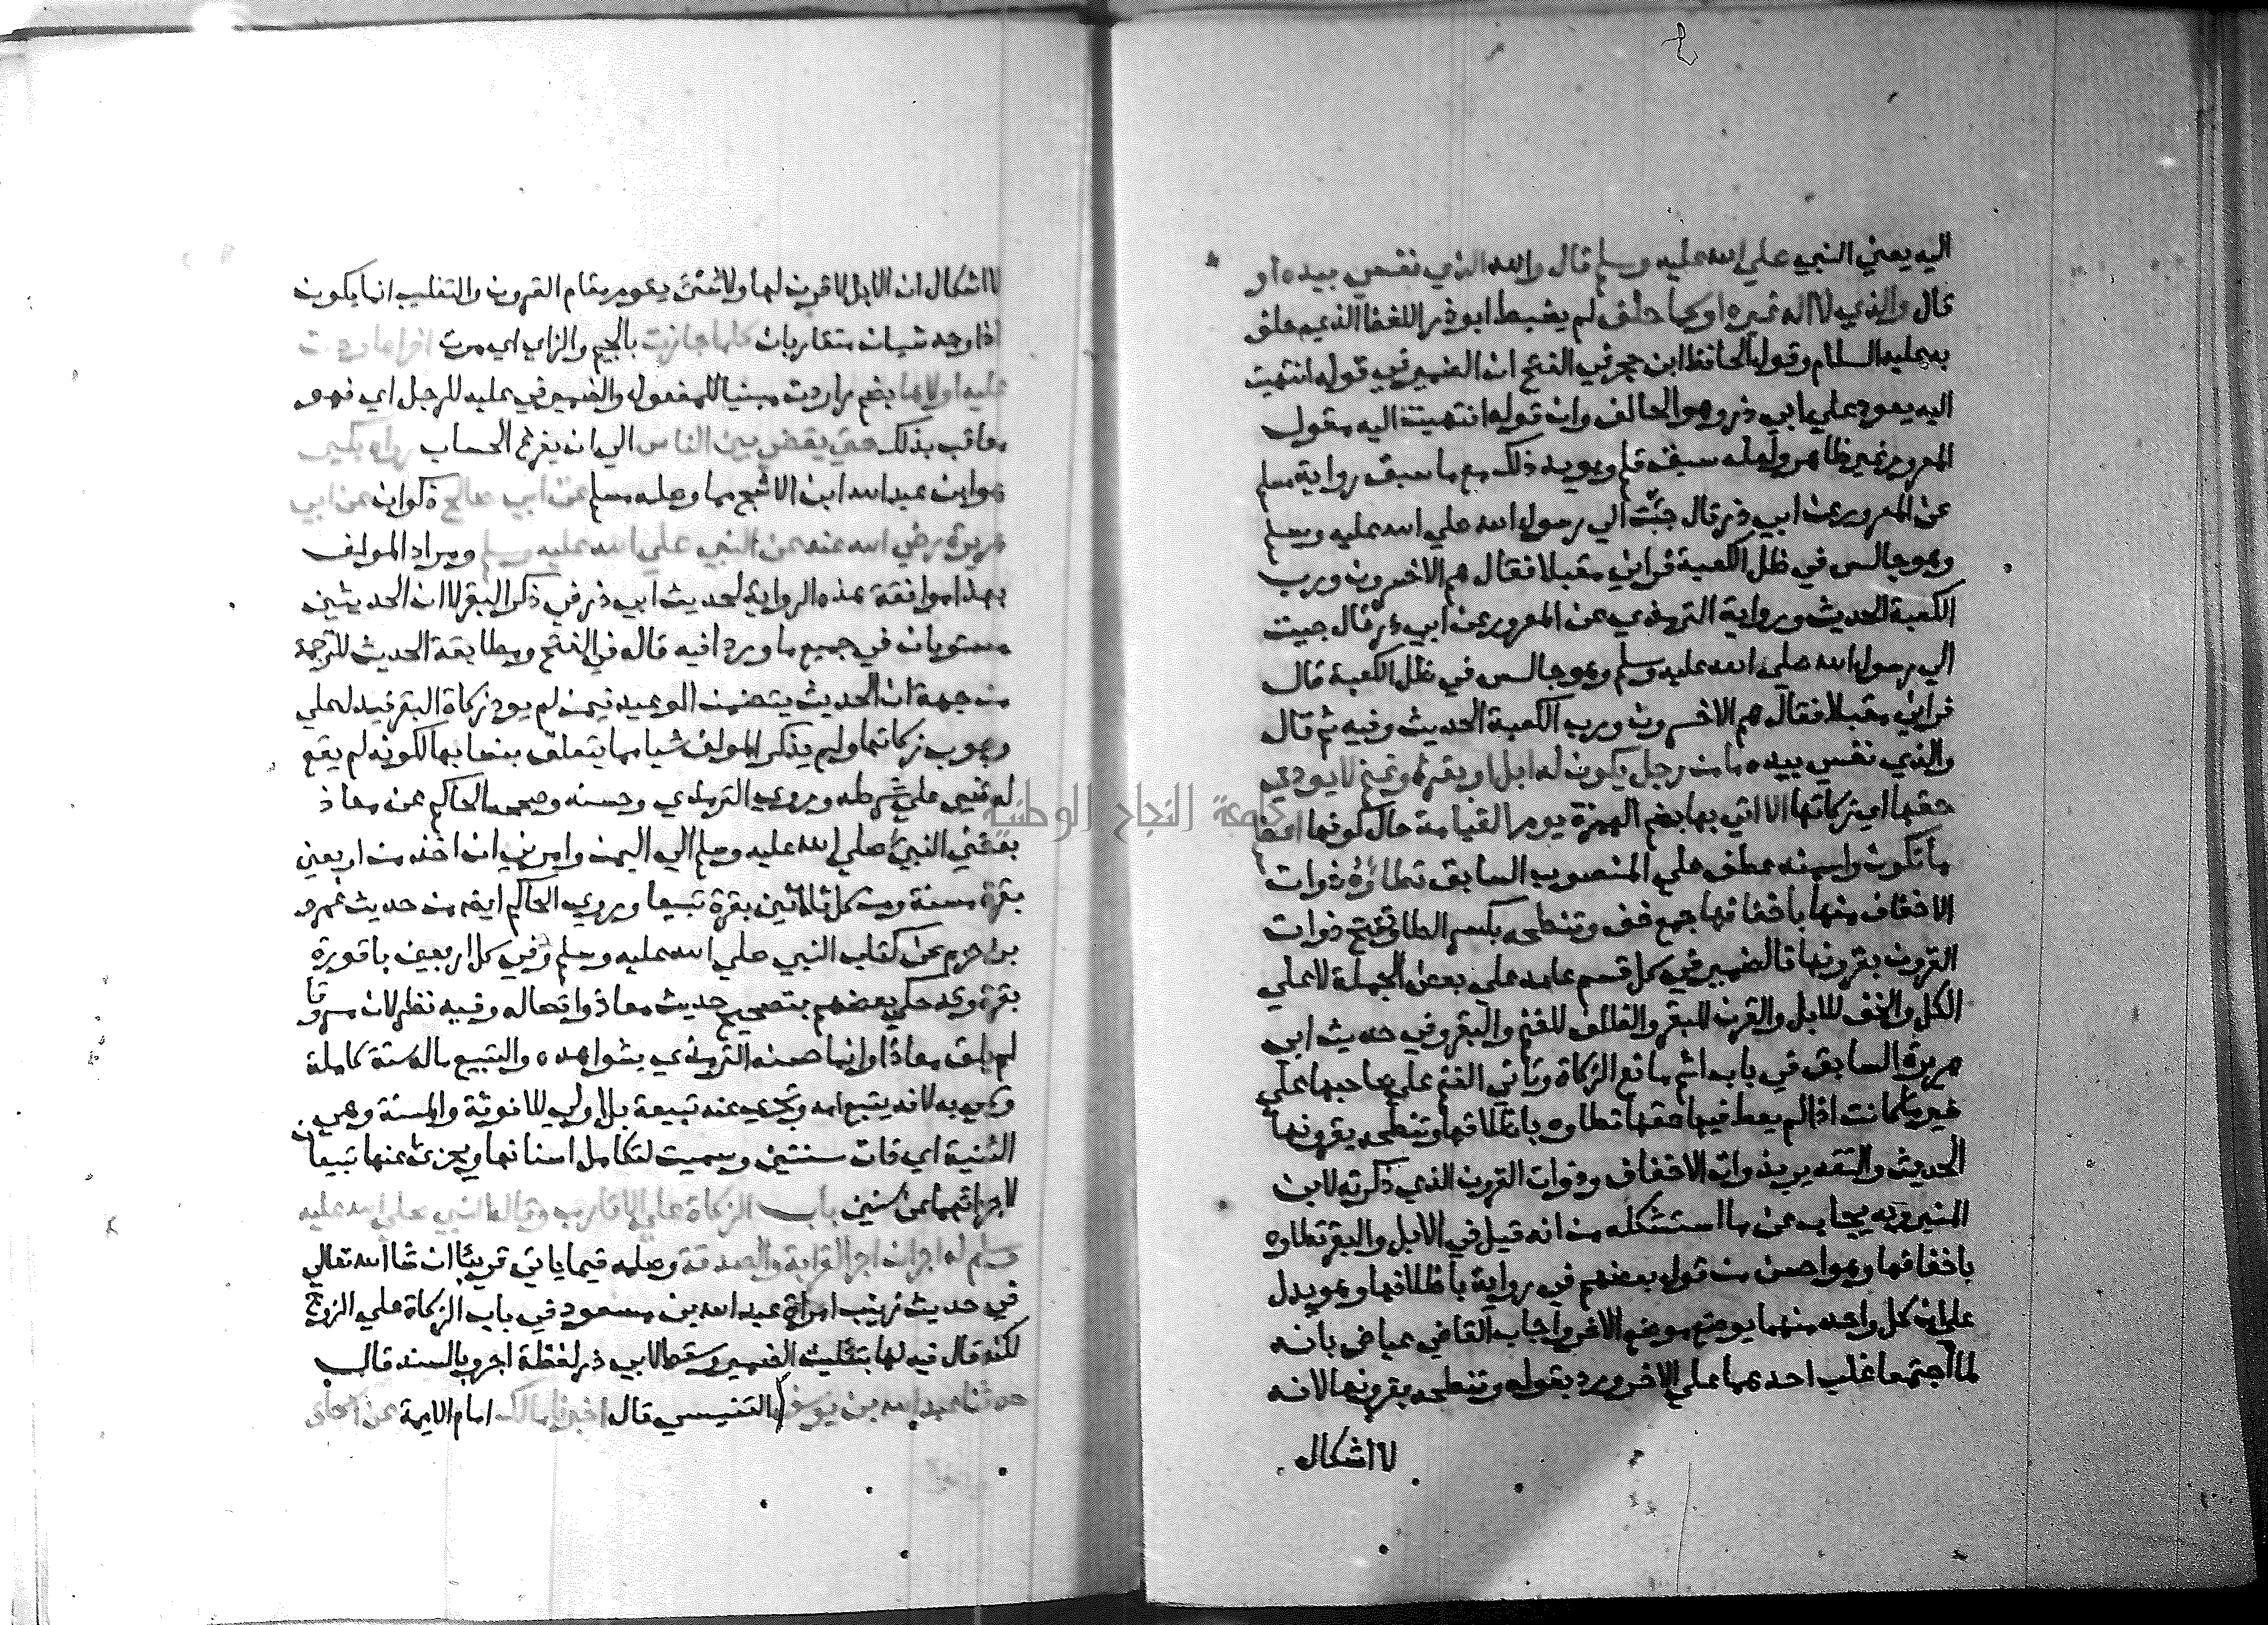 اليه يعني النبي صلي الله عليه وسلم قال والله الذي نفسي بيده او
قال والذي لا اله غيره او كما حلف لم يضبط ابو ذر اللفظ الذي حلف
به عليه السلام وقول الحافظ ابن حجر في الفتح ان الضمير في قوله انتهيت
اليه يعود علي ابي ذر وهو الحالف وان قوله انتهيت اليه مقول
المعرور غير ظاهر ولعله سبق قلم ويويد ذلك مع ما سبق رواية مسلم
عن المعرور عن ابي ذر قال جئت الي رسول الله صلي الله عليه وسلم
وهو جالس في ظل الكعبة فراني مقبلا فقال هم الاخسرون ورب
الكعبة الحديث ورواية الترمذي عن المعرور عن ابي ذر قال جيت
الي رسول الله صلي الله عليه وسلم وهو جالس في ظل الكعبة قال
فراني مقبلا فقال هم الاخسرون ورب الكعبة الحديث وفيه ثم قال
والذي نفسي بيده ما من رجل يكون له ابل او بقر او غنم لا يودي
حقها اي زكاتها الا اتي بها بضم الهمزة يوم القيامة حال كونها اعظم
ما تكون واسمنه عطف علي المنصوب السابق تطاؤه ذوات
الاخفاف منها باخفافها جمع خف وتنطحه بكسر الطا وتفتح ذوات
القرون بقرونها فالضمير في كل قسم عايد علي بعض الجملة لا علي
الكل والخف للابل والقرن للبقر والظلف للغنم والبقر وفي حديث ابي
هريرة السابق في باب اثم مانع الزكاة وتاتي الغنم علي صاحبها علي
خير ما كانت اذا لم يعط فيها حقها تطاوه باظلافها وتنطحه بقرونها
الحديث والتقدير بذوات الاخفاف وذوات القرون الذي ذكرته لابن
المنير وبه يجاب عن ما استشكله من انه قيل في الابل والبقر تطاوه
باخفافها وهو احسن من قول بعضهم في رواية باظلافها وهو يدل
علي ان كل واحد منهما يوضع موضع الاخر واجاب القاضي عياض بانه
لما اجتمعا غلب احدهما علي الاخر ورد بقوله وتنطحه بقرونها لانه
لا اشكال
لا اشكال ان الابل لا قرون لها ولا شئ يقوم مقام القرون والتغليب انما يكون
اذا وجد شيان متقاربان كلما جازت بالجيم والزاي اي مرت اخراها ردت
عليه اولاها بضم را ردت مبنيا للمفعول والضمير في عليه للرجل اي فهو
معاقب بذلك حتي يقضي بين الناس الي ان يفرغ الحساب رواه بكير
هو ابن عبد الله ابن الاشج مما وصله مسلم عن ابي صالح ذكوان عن ابي
هريرة رضي الله عنه عن النبي صلي الله عليه وسلم ومراد المولف
بهذا موافقة هذه الرواية لحديث ابي ذر في ذكر البقر لا ان الحديثين
مستويان في جميع ما ورد افيه قاله في الفتح ومطابقة الحديث للترجمة
من جهة ان الحديث يتضمن الوعيد فيمن لم يود زكاة البقر فيدل علي
وجوب زكاتها ولم يذكر المولف شيا مما يتعلق بنصابها لكونه لم يقع
له شي علي شرطه وروي الترمذي وحسنه وصححه الحاكم عن معاذ
بعثني النبي صلي الله عليه وسلم الي اليمن وامرني ان اخذ من اربعين
بقرة مسنة ومن كل ثلاثين بقرة تبيعا وروي الحاكم ايضا من حديث عمرو
بن حزم عن كتاب النبي صلي الله عليه وسلم وفي كل اربعين باقورة
بقرة وقد حكي بعضهم بتصحيح حديث معاذ واتصاله وفيه نظر لان مسروقا
لم يلق معاذا وانما حسنه الترمذي بشواهده والتبيع ما له سنة كاملة
وسمي به لانه يتبع امه وتجزي عنه تبيعة بل اولي للانوثة والمسنة وهي
الثنية اي ذات سنتين وسميت لتكامل اسنانها ويجزئ عنها تبيعان
لاجزائهما عن ستين باب الزكاة علي الاقارب وقال النبي صلي الله عليه
وسلم له اجران اجر القرابة والصدقة وصله فيما ياتي قريبا ان شا الله تعالي
في حديث زينب امراة عبد الله بن مسعود في باب الزكاة علي الزوج
لكنه قال فيه لها بتانيث الضمير وسقط لابي ذر لفظة اجر وبالسند قال
حدثنا عبد الله بن يوسف التنيسي قال اخبرنا مالك امام الايمة عن اسحاق
جامعة النجاح الوطنية